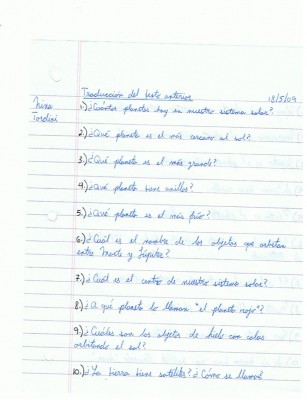 Traducción del texto anterior
18/5/09
Nina
Tordini
1) ¿Cuántos planetas hay en nuestro sistema solar?
2) ¿Qué planeta es el más cercano al sol?
3) ¿Qué planeta es el más grande?
4) ¿Qué planeta tiene anillos?
5) ¿Qué planeta es el más frío?
6) ¿Cuál es el nombre de los objetos que orbitan
entre Marte y Júpiter?
7) ¿Cuál es el centro de nuestro sistema solar?
8) ¿A qué planeta lo llaman "el planeta rojo"?
9) ¿Cuáles son los objetos de hielo con colas
orbitando el sol?
10) ¿La tierra tiene satélites? ¿Cómo se llama?